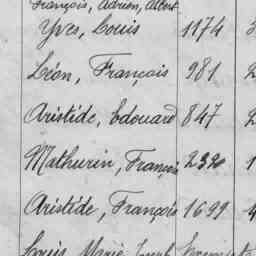 François, Adrien, Albert
Yves, Louis 1174
Léon, François 981
Aristide, Edouard 847
Mathurin, François 2320
Aristide, François 1699
Louis Marie Joseph